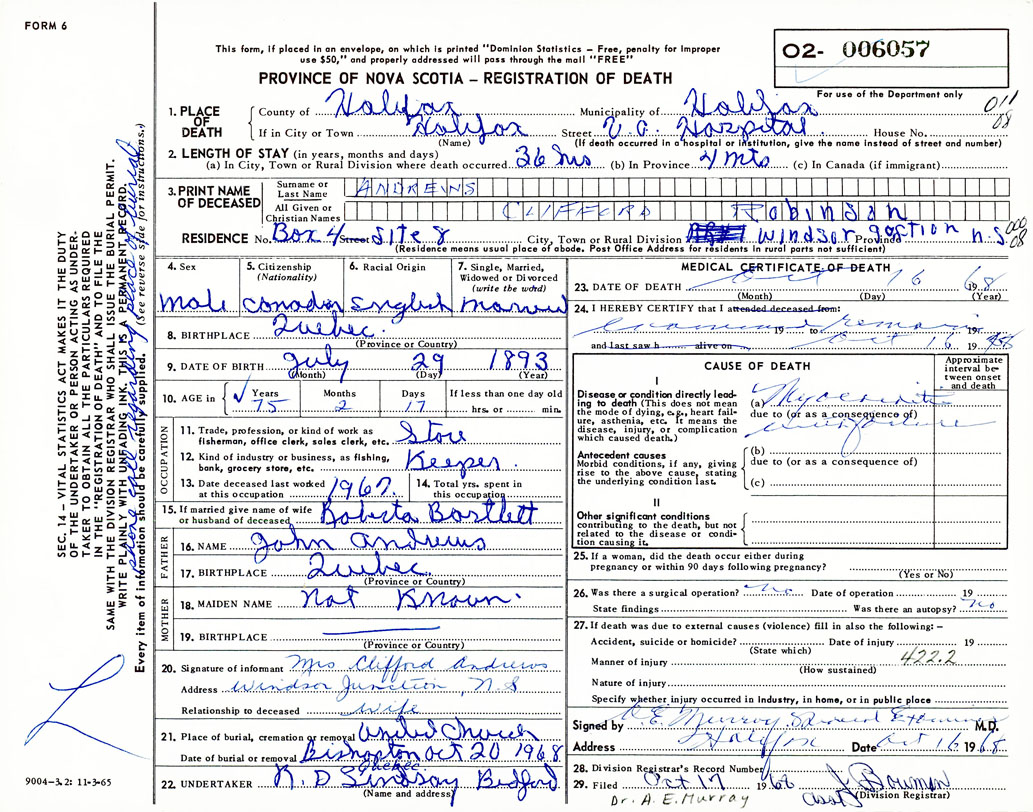 FORM 6
This form, if placed in an envelope, on which is printed "Dominion Statistics – Free, penalty for improper
use $50," and properly addressed will pass through the mail "FREE"
PROVINCE OF NOVA SCOTIA – REGISTRATION OF DEATH
02- 006057
For use of the Department only
011
08
1. PLACE OF DEATH
County of Halifax Municipality of Halifax
If in City or Town Halifax Street V. G. Hospital House No.
(Name) (If death occurred in a hospital or institution, give the name instead of street and number)
2. LENGTH OF STAY (in years, months and days)
(a) In City, Town or Rural Division where death occurred 36 hrs (b) In Province 4 mts (c) In Canada (if immigrant)
3. PRINT NAME OF DECEASED
Surname or Last Name ANDREWS
All Given or Christian Names CLIFFORD Robinson
RESIDENCE No. Box 4 Street Site 8 City, Town or Rural Division Windsor Province N.S.
000
08
(Residence means usual place of abode. Post Office Address for residents in rural parts not sufficient)
4. Sex
Male
5. Citizenship
(Nationality)
Canadian
6. Racial Origin
English
7. Single, Married,
Widowed or Divorced
(write the word)
Married
8. BIRTHPLACE Quebec.
(Province or Country)
9. DATE OF BIRTH July 29 1893
(Month) (Day) (Year)
10. AGE in Years 75 Months 2 Days 17 If less than one day old
hrs. or min.
OCCUPATION
11. Trade, profession, or kind of work as
fisherman, office clerk, sales clerk, etc. Store
12. Kind of industry or business, as fishing,
bank, grocery store, etc. Keeper.
13. Date deceased last worked
at this occupation 1967.
14. Total yrs. spent in
this occupation
15. If married give name of wife
or husband of deceased Roberta Bartlett
FATHER
16. NAME John Andrews
17. BIRTHPLACE Quebec.
(Province or Country)
MOTHER
18. MAIDEN NAME Not Known.
19. BIRTHPLACE
(Province or Country)
20. Signature of informant Mrs Clifford Andrews
Address Windsor Junction, N.S
Relationship to deceased wife
21. Place of burial, cremation or removal United Church
Date of burial or removal Bishopton Oct 20 1968
Quebec
22. UNDERTAKER R. D Lindsay Bedford
(Name and address)
MEDICAL CERTIFICATE OF DEATH
23. DATE OF DEATH Oct 16 1968
(Month) (Day) (Year)
24. I HEREBY CERTIFY that I attended deceased from:
19 to 19
and last saw h alive on Oct 16 19
CAUSE OF DEATH
Approximate
interval be-
tween onset
and death
I
Disease or condition directly lead-
ing to death (This does not mean
the mode of dying, e.g., heart fail-
ure, asthenia, etc. It means the
disease, injury, or complication
which caused death.)
(a)
due to (or as a consequence of)
Antecedent causes
Morbid conditions, if any, giving
rise to the above cause, stating
the underlying condition last.
(b)
due to (or as a consequence of)
(c)
II
Other significant conditions
contributing to the death, but not
related to the disease or condi-
tion causing it.
25. If a woman, did the death occur either during
pregnancy or within 90 days following pregnancy?
(Yes or No)
26. Was there a surgical operation? no Date of operation 19
State findings Was there an autopsy? no
27. If death was due to external causes (violence) fill in also the following: –
Accident, suicide or homicide? Date of injury 19
(State which)
Manner of injury 422.2
(How sustained)
Nature of injury
Specify whether injury occurred in Industry, in home, or in public place
Signed by A. E. Murray M.D.
Address Halifax Date Oct 16 1968.
28. Division Registrar's Record Number
29. Filed Oct 17 1968 J Bowman
(Division Registrar)
Dr. A. E. Murray
SEC. 14 – VITAL STATISTICS ACT MAKES IT THE DUTY
OF THE UNDERTAKER OR PERSON ACTING AS UNDER-
TAKER TO OBTAIN ALL THE PARTICULARS REQUIRED
IN THE "REGISTRATION OF DEATH" AND TO FILE THE
SAME WITH THE DIVISION REGISTRAR WHO SHALL ISSUE THE BURIAL PERMIT.
WRITE PLAINLY WITH UNFADING INK. THIS IS A PERMANENT RECORD.
Every item of information should be carefully supplied. (See reverse side for instructions.)
phone call regarding place of burial
9004-3.2: 11-3-65